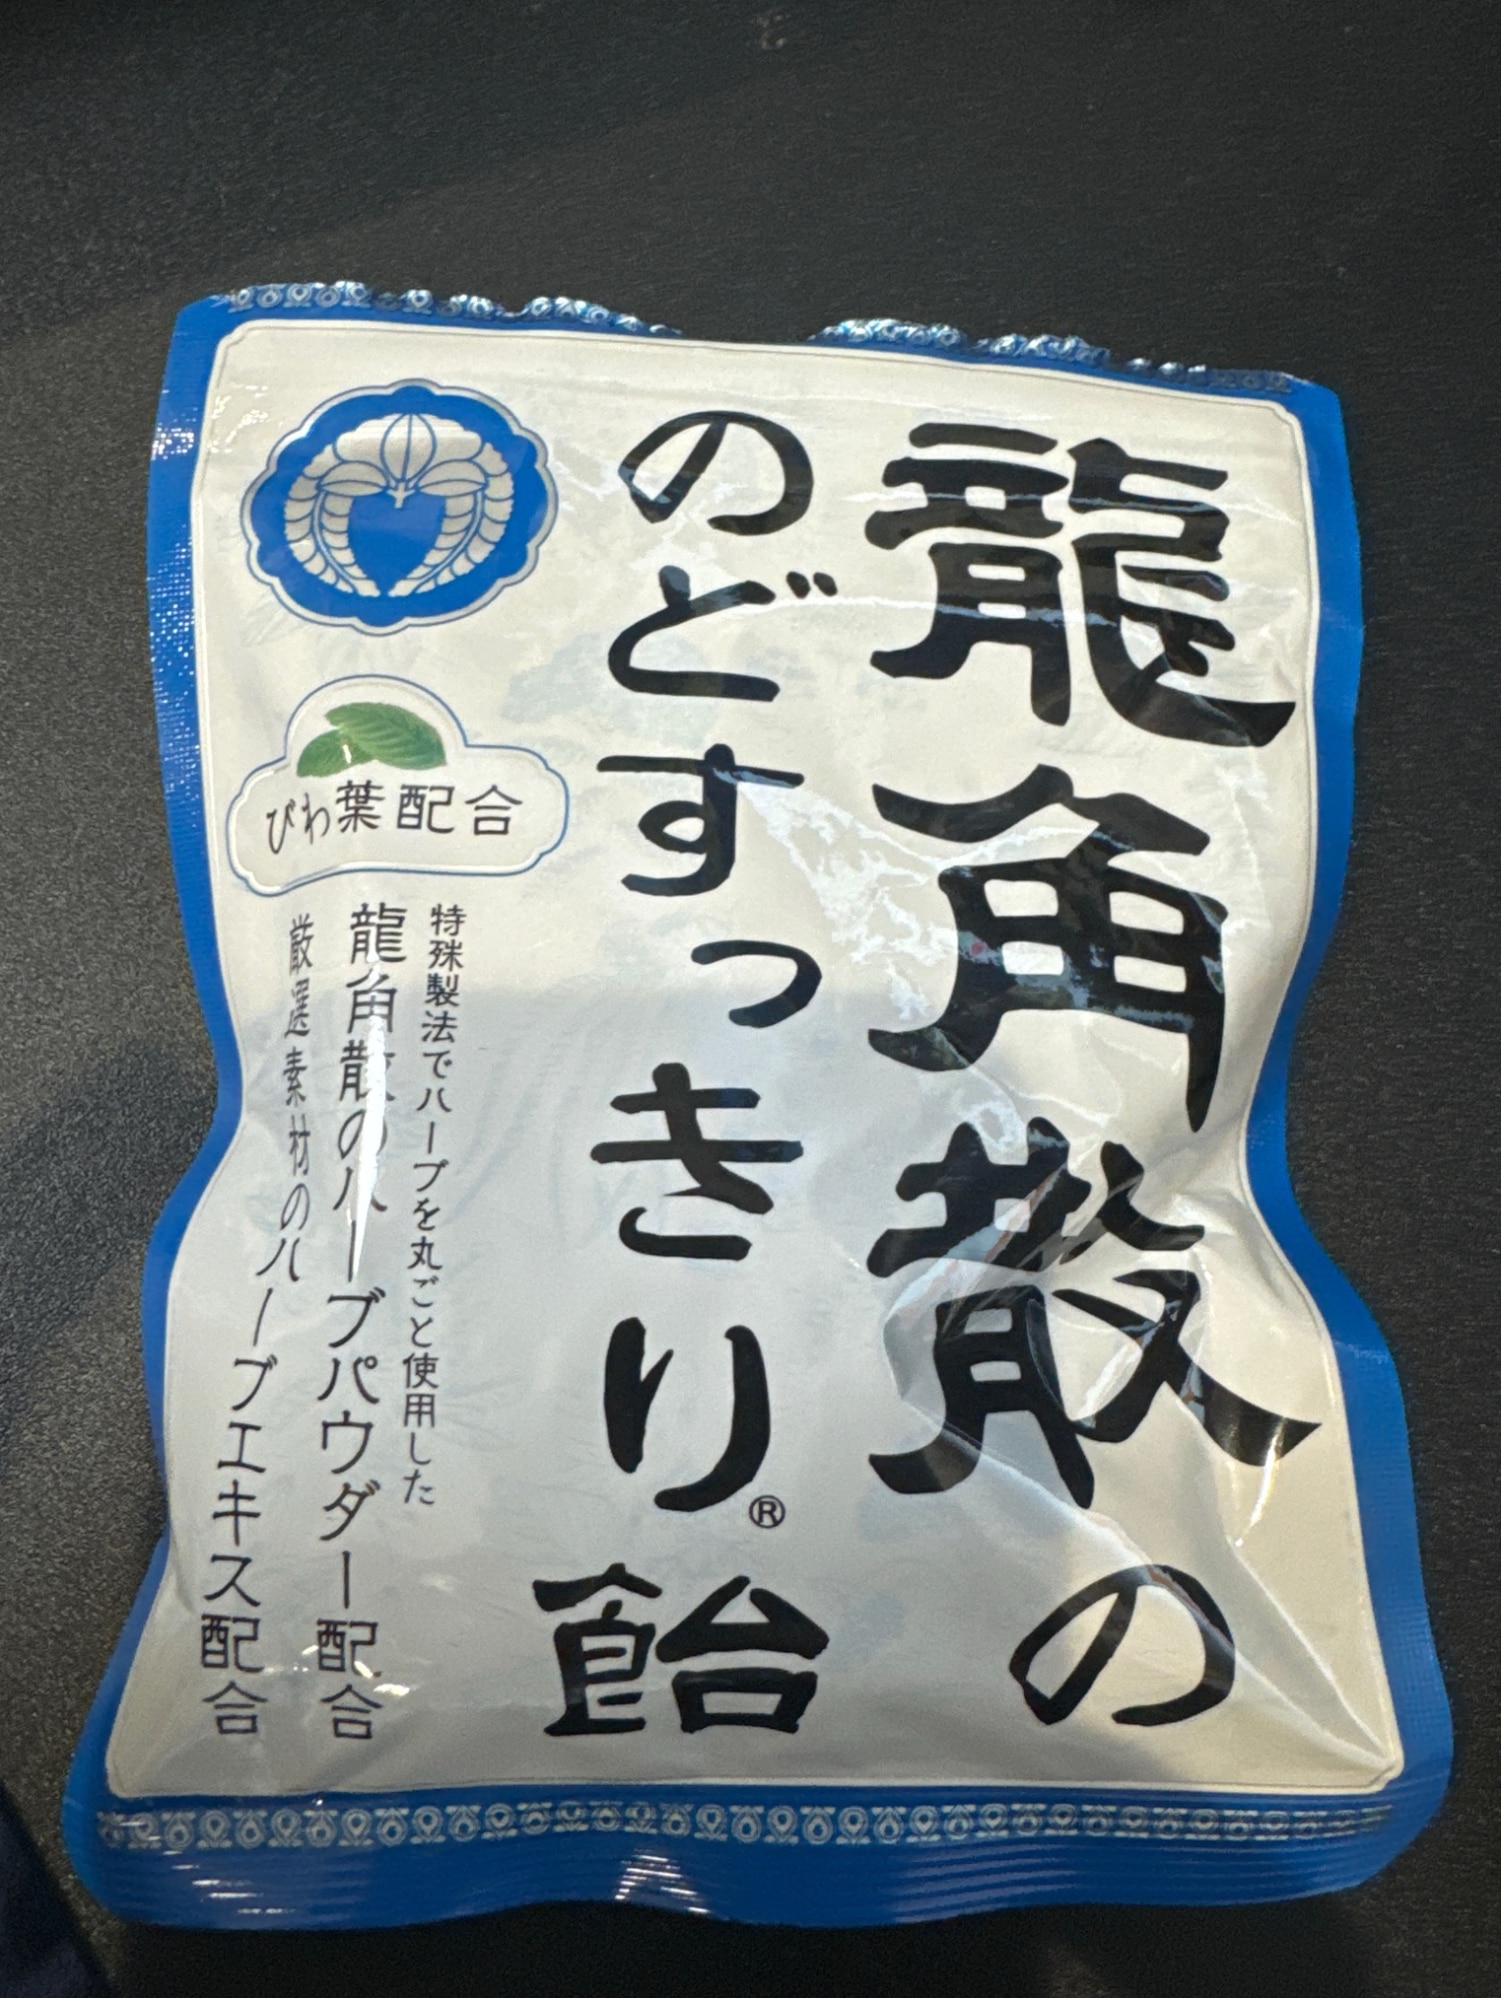 龍角散の
のどすっきり®飴
びわ葉配合
特殊製法でハーブを丸ごと使用した
龍角散のハーブパウダー配合
厳選素材のハーブエキス配合